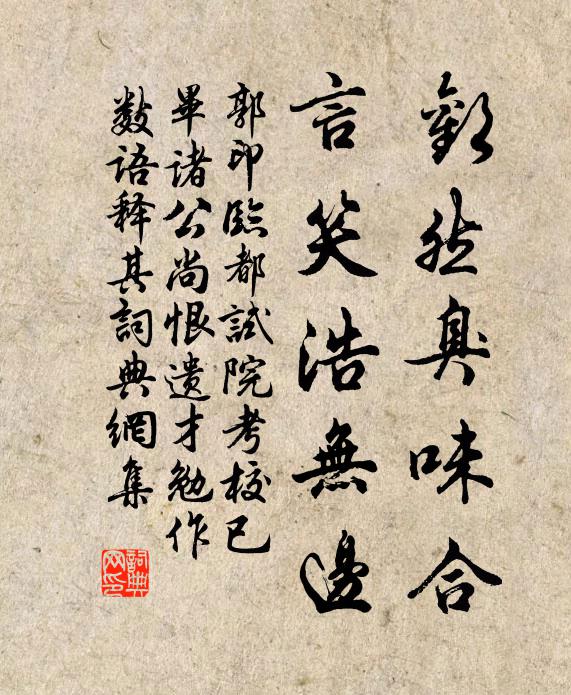 歡然臭味合
言笑浩無邊
郭印臨都試院考校已
畢諸公尚恨遺才勉作
数語释其詞典網集
詞典网印